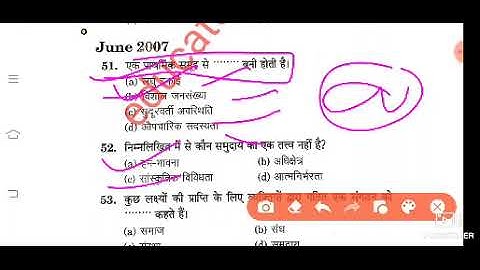 June 2007
51. एक प्राथमिक समूह से ........ बनी होती है।
(a) लघु
(b) विशाल जनसंख्या
(c) सुदूरवर्ती अवस्थिति
(d) औपचारिक सदस्यता
52. निम्नलिखित में से कौन समुदाय का एक तत्त्व नहीं है?
(a) हम-भावना (b) अधिक्षेत्र
(c) सांस्कृतिक विविधता (d) आत्मनिर्भरता
53. कुछ लक्ष्यों की प्राप्ति के लिए
........ कहते हैं।
(a) समाज (b) संघ
(c) संस्था (d) समुदाय